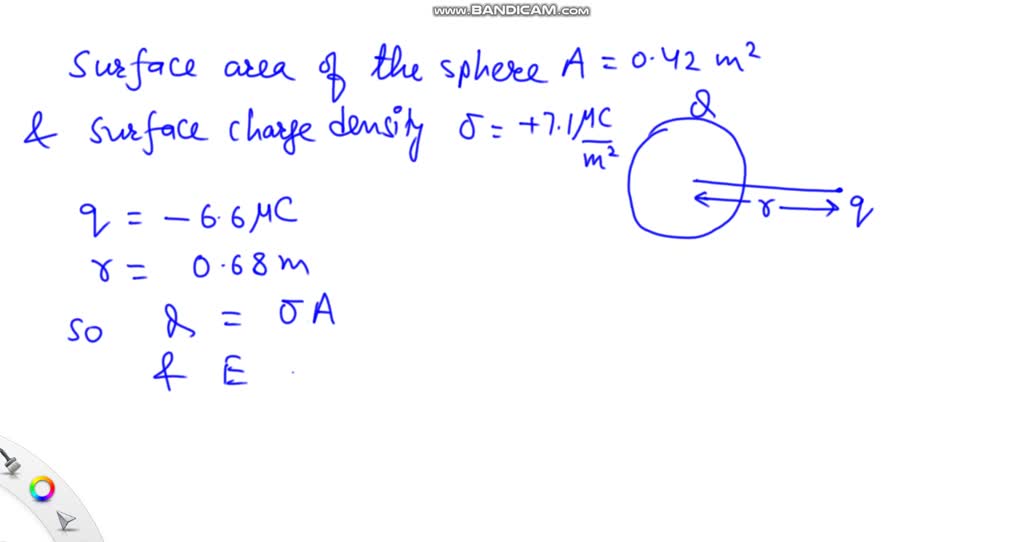 www.BANDICAM.com
Surface area of the sphere A = 0.42 m²
& surface charge density σ = +7.1 μC/m²
Q
q = -6.6 μC
r
q
r = 0.68 m
so Q = σA
& E